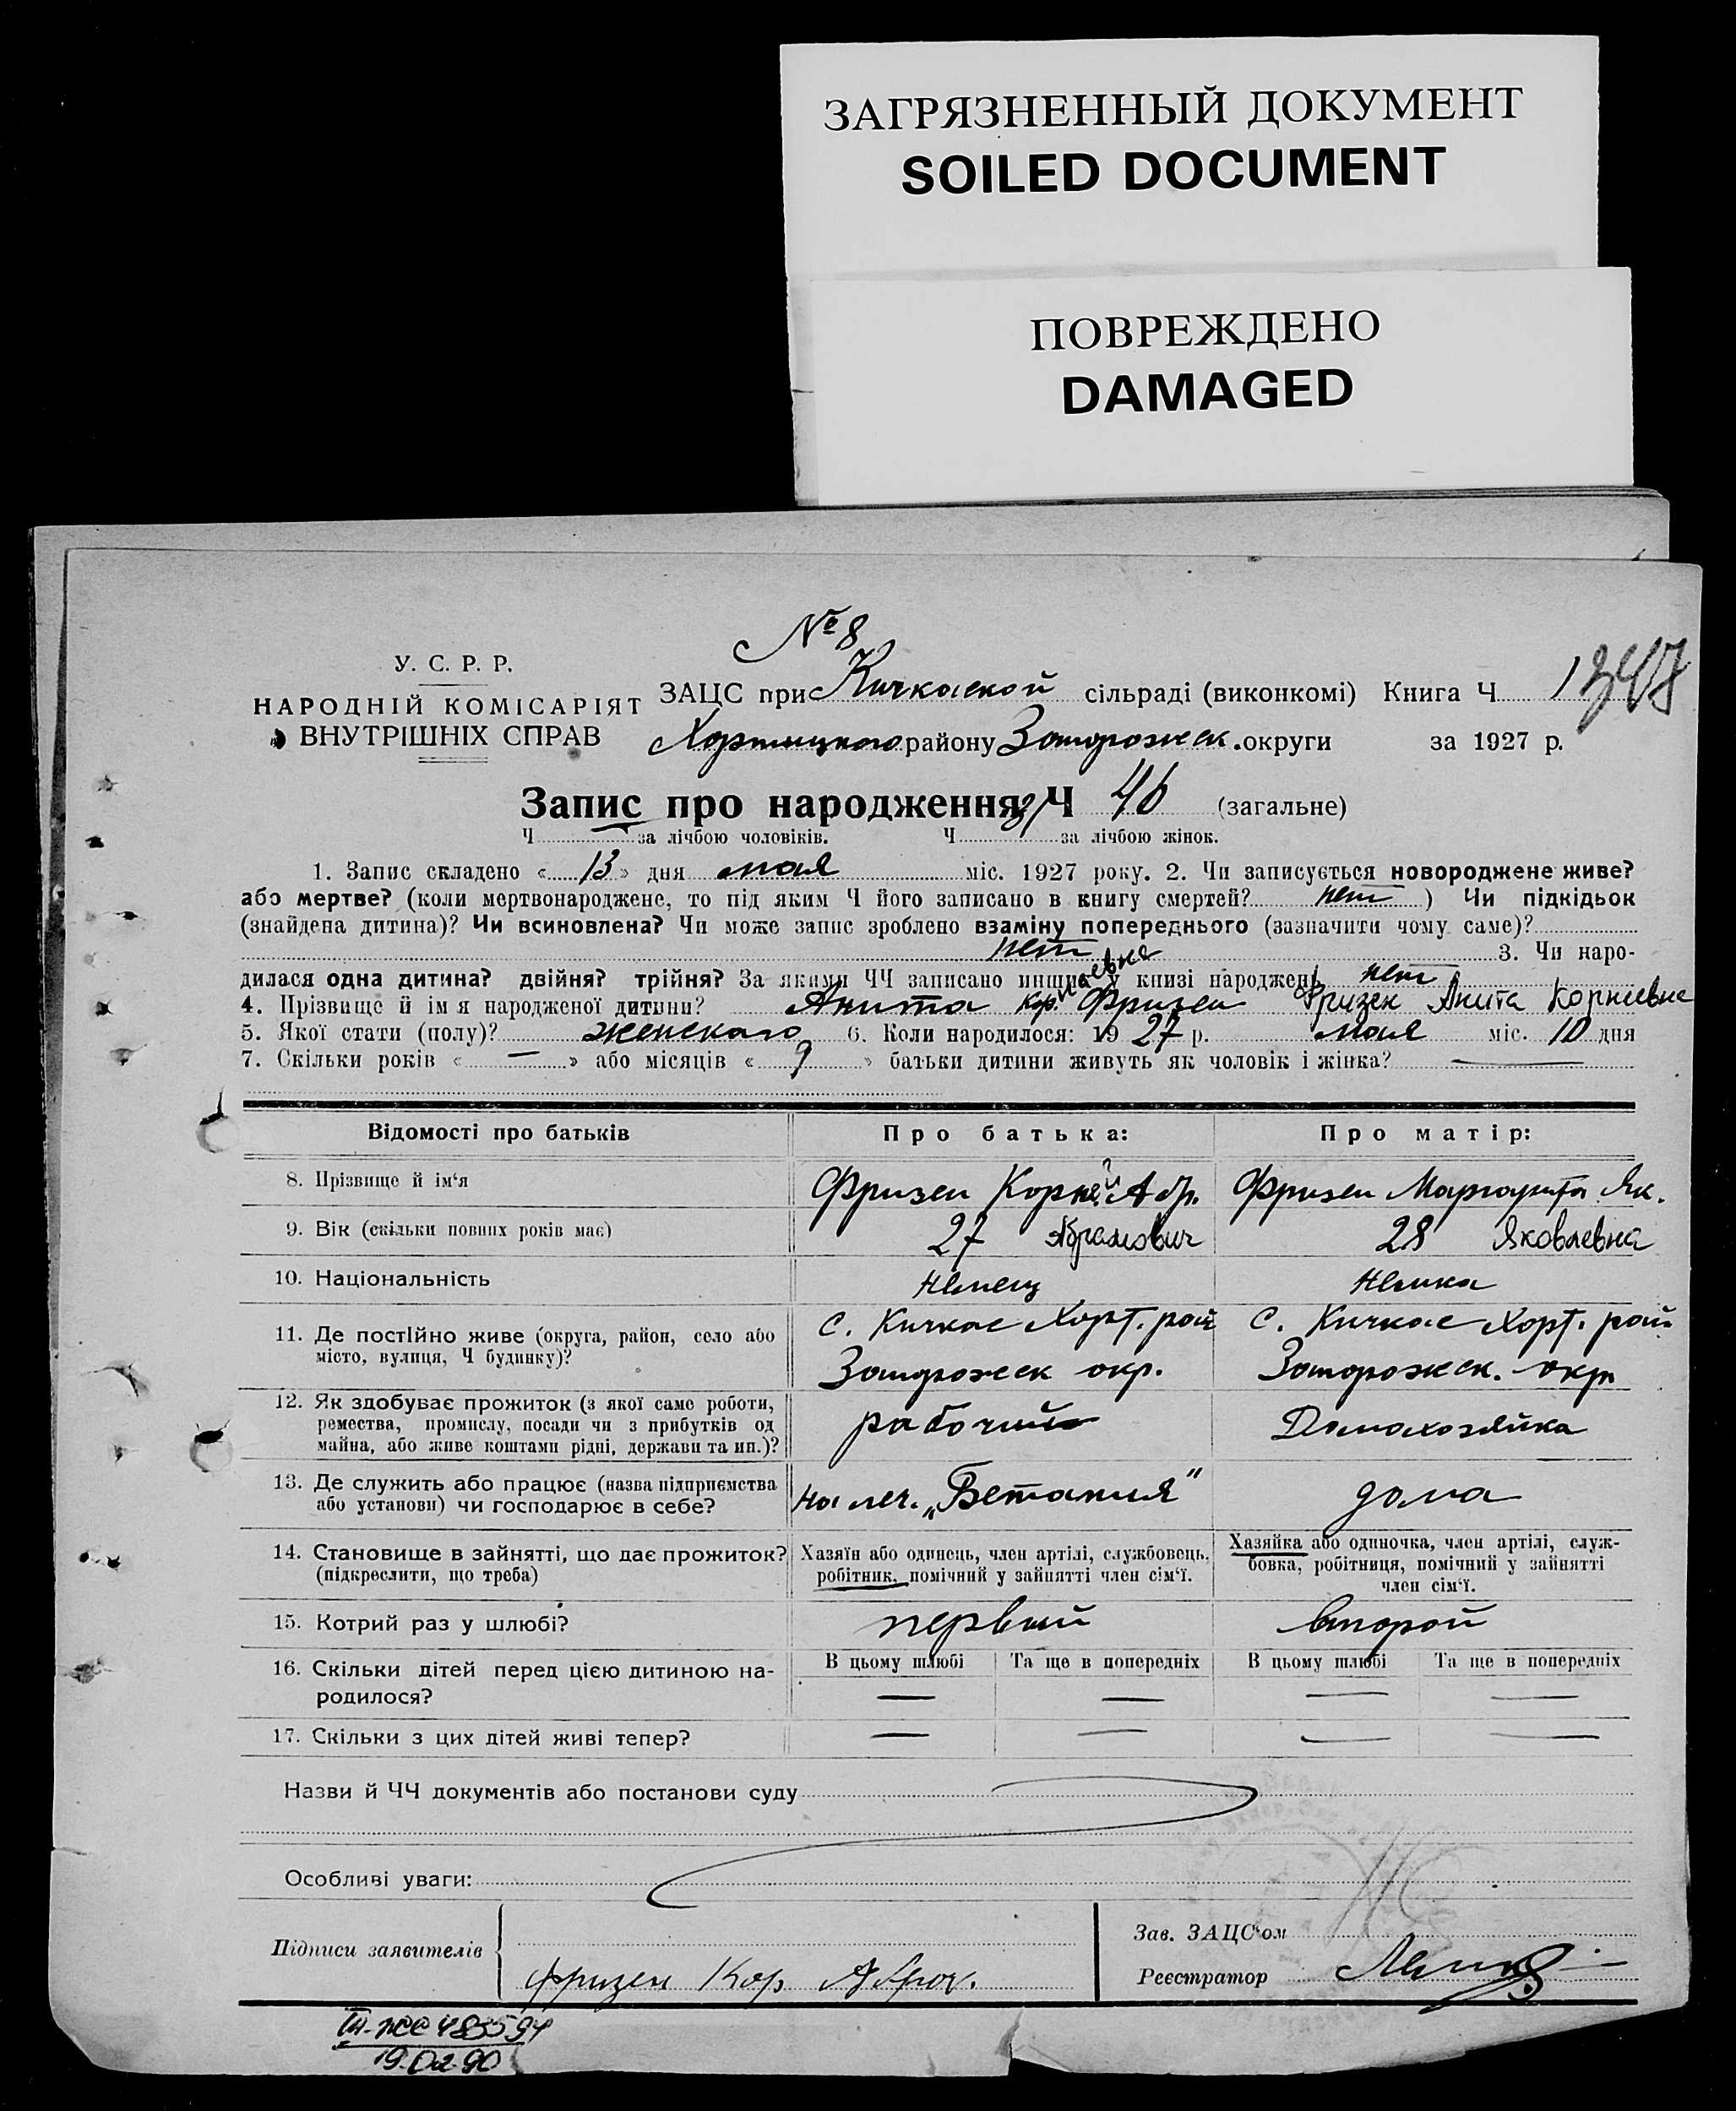 ЗАГРЯЗНЕННЫЙ ДОКУМЕНТ
SOILED DOCUMENT
ПОВРЕЖДЕНО
DAMAGED
№ 8
У. С. Р. Р.
НАРОДНІЙ КОМІСАРІЯТ
ВНУТРІШНІХ СПРАВ
ЗАЦС при Кичкаской сільраді (виконкомі) Книга Ч
Хортицкого району Запорожск. округи за 1927 р.
Запис про народження Ч 46 (загальне)
Ч за лічбою чоловіків. Ч за лічбою жінок.
1. Запис складено « 13 » дня мая міс. 1927 року. 2. Чи записується новороджене живе?
або мертве? (коли мертвонароджене, то під яким Ч його записано в книгу смертей? нет ) Чи підкідьок
(знайдена дитина)? Чи всиновлена? Чи може запис зроблено взаміну попереднього (зазначити чому саме)?
нет 3. Чи наро-
дилася одна дитина? двійня? трійня? За якими ЧЧ записано инших у книзі народжень нет
4. Прізвище й ім я народженої дитини? Анита Кор.неевна Фризен Фризен Анита Корнеевна
5. Якої стати (полу)? женского 6. Коли народилося: 1927 р. мая міс. 10 дня
7. Скільки років « — » або місяців « 9 » батьки дитини живуть як чоловік і жінка? —
Відомості про батьків Про батька: Про матір:
8. Прізвище й ім‘я Фризен Корней Абр. Фризен Маргарита Як.
9. Вік (скільки повних років має) 27 Абрамович 28 Яковлевна
10. Національність Немец Немка
11. Де постійно живе (округа, район, село або місто, вулиця, Ч будинку)?
с. Кичкас Хорт. рай Запорожск окр.
с. Кичкас Хорт. рай Запорожск. окр
12. Як здобуває прожиток (з якої само роботи,
ремества, промислу, посади чи з прибутків од
майна, або живе коштами рідні, держави та ин.)?
рабочий Домохозяйка
13. Де служить або працює (назва підприємства
або установи) чи господарює в себе?
на леч. „Бетания“ дома
14. Становище в зайнятті, що дає прожиток?
(підкреслити, що треба)
Хазяїн або одинець, член артілі, службовець,
робітник, помічний у зайнятті член сім‘ї.
Хазяйка або одиночка, член артілі, служ-
бовка, робітниця, помічний у зайнятті
член сім‘ї.
15. Котрий раз у шлюбі? первый второй
16. Скільки дітей перед цією дитиною на-
родилося?
В цьому шлюбі Та ще в попередніх В цьому шлюбі Та ще в попередніх
— — — —
17. Скільки з цих дітей живі тепер? — — — —
Назви й ЧЧ документів або постанови суду
Особливі уваги:
Підписи заявителів
Фризен Кор Абрам.
Зав. ЗАЦС‘ом
Реєстратор
19.02.90